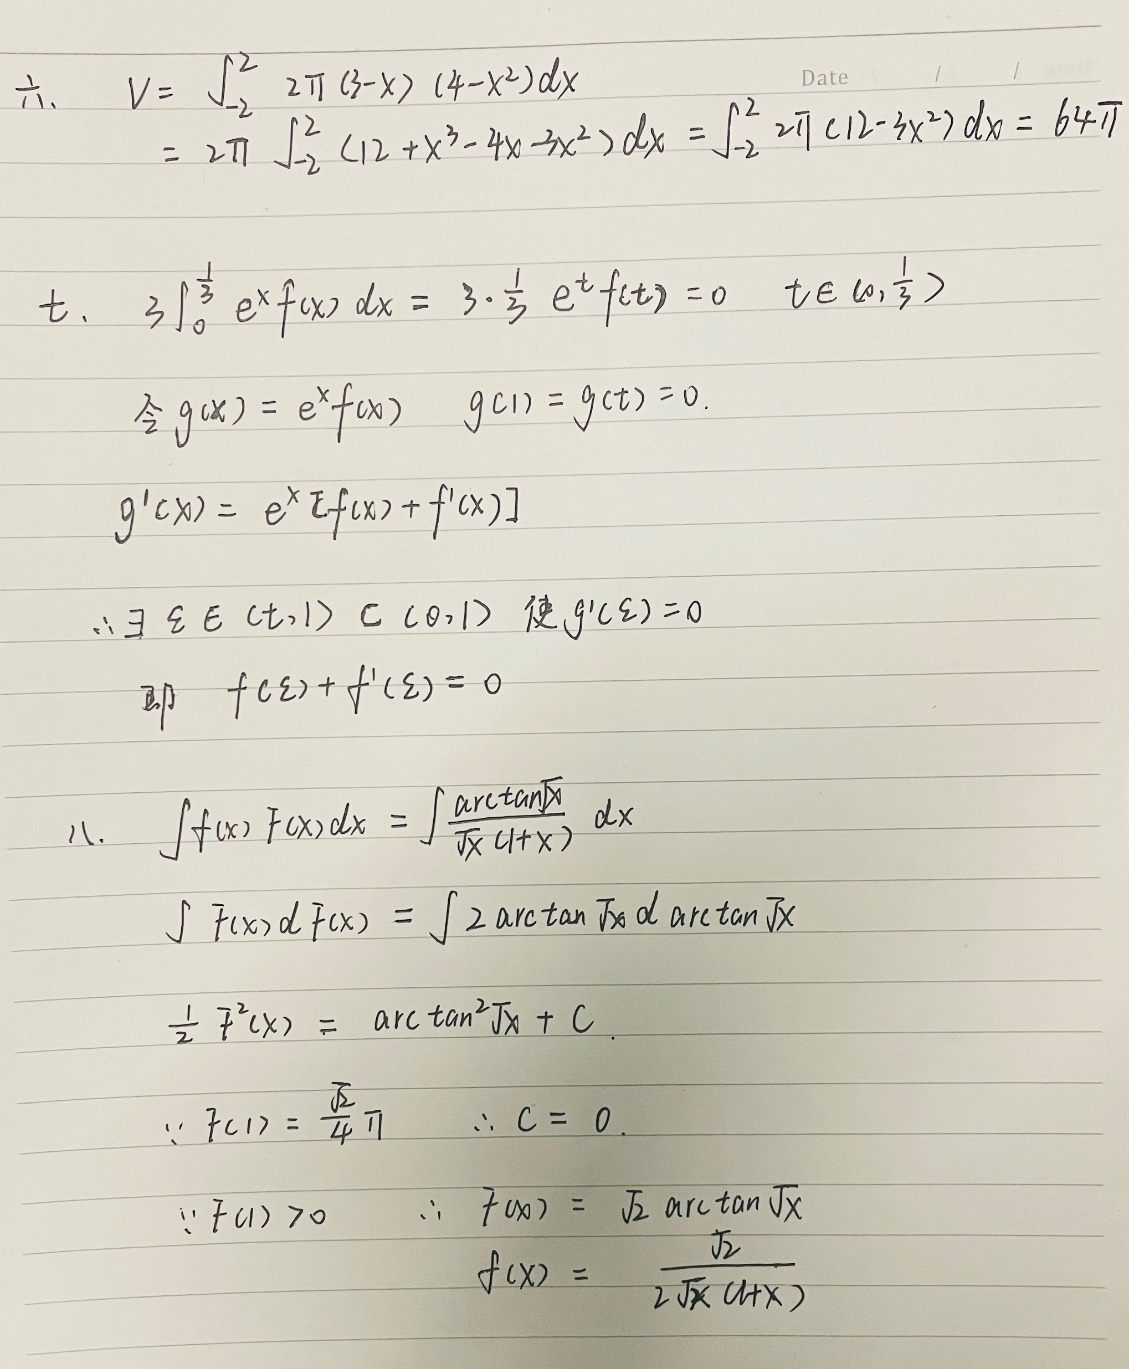 Date / /
六. V = ∫_{-2}^{2} 2π (3-x) (4-x²) dx
= 2π ∫_{-2}^{2} (12 + x³ - 4x - 3x²) dx = ∫_{-2}^{2} 2π (12 - 3x²) dx = 64π
七. 3∫_{0}^{1/3} e^x f(x) dx = 3·1/3 e^t f(t) = 0 t ∈ (0, 1/3)
令 g(x) = e^x f(x) g(1) = g(t) = 0.
g'(x) = e^x [f(x) + f'(x)]
∴ ∃ ξ ∈ (t, 1) ⊂ (0, 1) 使 g'(ξ) = 0
即 f(ξ) + f'(ξ) = 0
八. ∫ f(x) F(x) dx = ∫ arctan√x / (√x (1+x)) dx
∫ F(x) d F(x) = ∫ 2 arctan √x d arctan √x
1/2 F²(x) = arctan² √x + C.
∵ F(1) = √2/4 π ∴ C = 0.
∵ F(1) > 0 ∴ F(x) = √2 arctan √x
f(x) = √2 / (2√x (1+x))